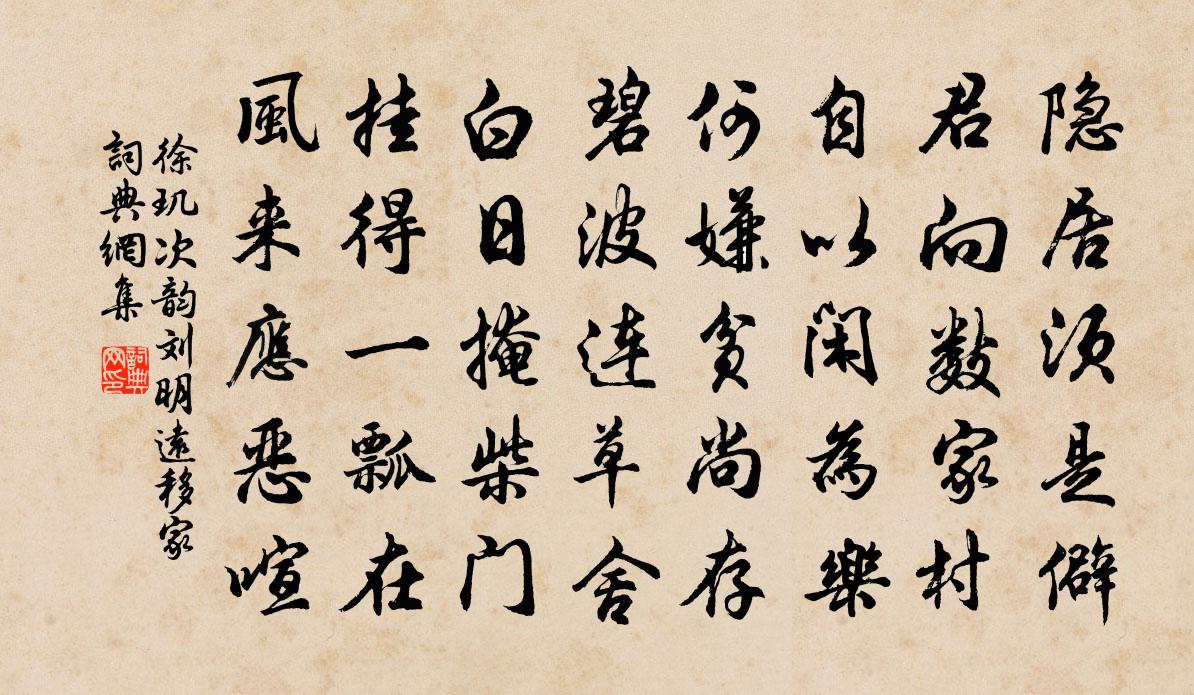 隐居须是僻
君向数家村
自以闲為樂
何嫌贫尚存
碧波连草舍
白日掩柴门
挂得一瓢在
風来應恶喧
徐玑次韵刘明遠移家
詞典網集
詞典網印